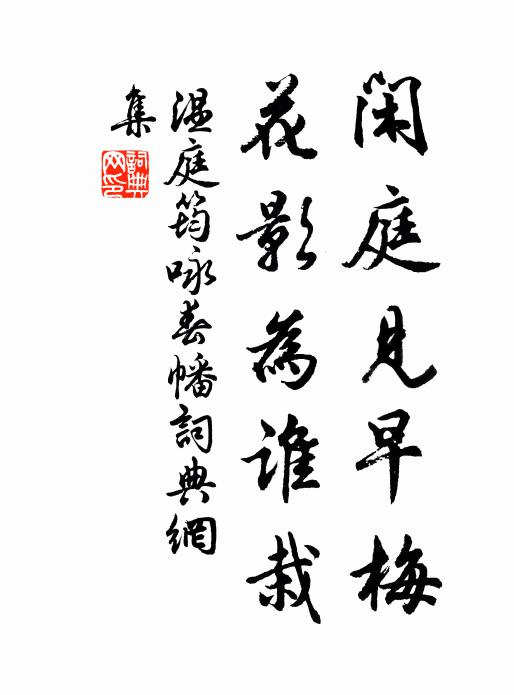 閑庭見早梅
花影為誰栽
温庭筠咏春幡詞典網
集
詞典
网印